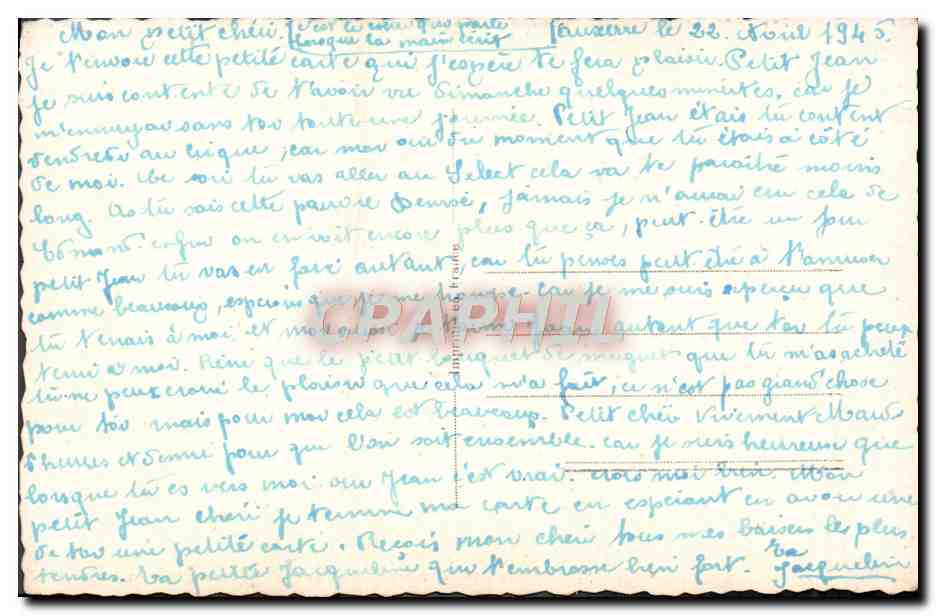 Mon petit chéri. c'est le cœur qui parle lorsque la main écrit Auxerre le 22 Avril 1945.
Je t'envoie cette petite carte qui j'espère te fera plaisir. Petit Jean
je suis contente de t'avoir vu dimanche quelques minutes, car je
m'ennuyai sans toi toute une journée. Petit Jean étais tu content
vendredi au cirque, car moi oui du moment que tu étais à côté
de moi. Ce soir tu vas aller au Select cela va te paraître moins
long. As tu sais cette pauvre Denise, jamais je n'aurai cru cela de
enfin on en voit encore plus que ça, peut-être un jour
petit Jean tu vas en faire autant, car tu penses peut être à t'amuser
comme beaucoup, espérons que je me trompe. Car je me suis aperçu que
tu tenais à moi et moi aussi autant que toi tu peux
tenir à moi. Rien que le petit bouquet de muguet que tu m'as acheté
tu ne peux croire le plaisir que cela m'a fait, ce n'est pas grand chose
pour toi mais pour moi cela est beaucoup. Petit chéri vivement Mardi
heures et demie pour que l'on soit ensemble. car je suis heureuse que
lorsque tu es vers moi oui Jean c'est vrai. crois moi bien. Mon
petit Jean chéri je termine ma carte en espérant en avoir une
de toi une petite carte. Reçois mon chéri tous mes baisers les plus
tendres. Ta petite Jacqueline qui t'embrasse bien fort. Ta Jacqueline
CPAPHIL
Imprimé en France